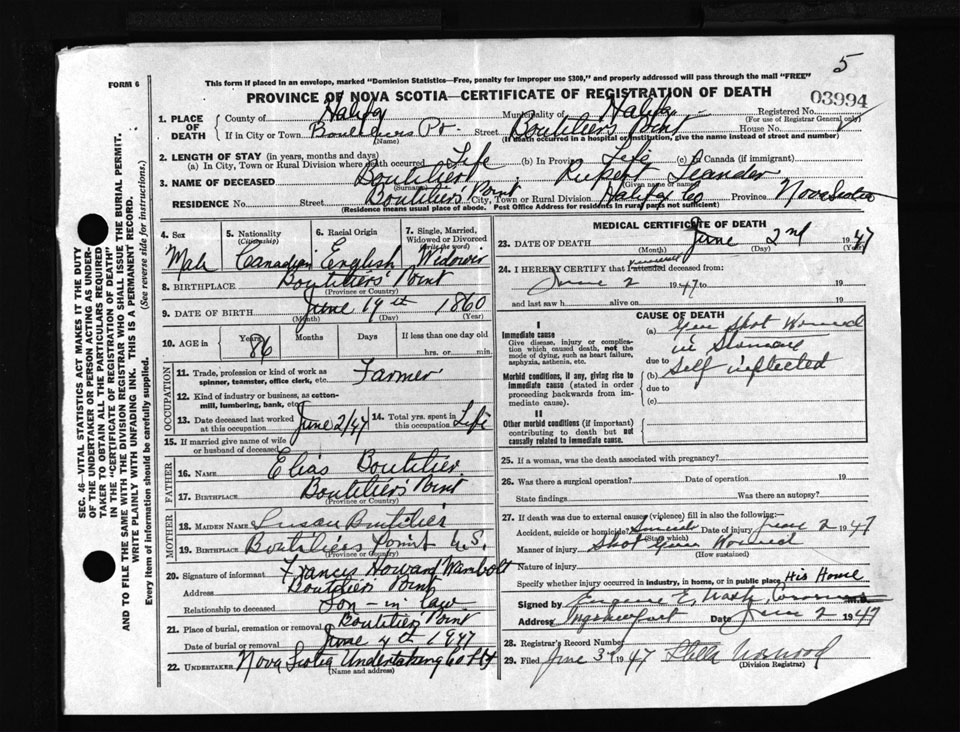 5
FORM 6
This form if placed in an envelope, marked "Dominion Statistics—Free, penalty for improper use $300," and properly addressed will pass through the mail "FREE"
PROVINCE OF NOVA SCOTIA—CERTIFICATE OF REGISTRATION OF DEATH
03994
SEC. 46—VITAL STATISTICS ACT MAKES IT THE DUTY
OF THE UNDERTAKER OR PERSON ACTING AS UNDER-
TAKER TO OBTAIN ALL THE PARTICULARS REQUIRED
IN THE "CERTIFICATE OF REGISTRATION OF DEATH"
AND TO FILE THE SAME WITH THE DIVISION REGISTRAR WHO SHALL ISSUE THE BURIAL PERMIT.
WRITE PLAINLY WITH UNFADING INK. THIS IS A PERMANENT RECORD.
Every item of Information should be carefully supplied. (See reverse side for instructions.)
1. PLACE OF DEATH County of Halifax Municipality of Halifax Registered No.
(For use of Registrar General only)
If in City or Town Pt. Street Boutiliers Point House No.
(Name) (If death occurred in a hospital or institution, give the name instead of street and number)
2. LENGTH OF STAY (in years, months and days)
(a) In City, Town or Rural Division where death occurred Life (b) In Province Life (c) In Canada (if immigrant)
3. NAME OF DECEASED Boutilier Rupert Leander
(Surname) (Given name or names)
RESIDENCE No. Street Boutiliers' Point City, Town or Rural Division Halifax Co Province Nova Scotia
(Residence means usual place of abode. Post Office Address for residents in rural parts not sufficient)
4. Sex Male
5. Nationality (Citizenship) Canadian
6. Racial Origin English
7. Single, Married, Widowed or Divorced (Write the word) Widower
8. BIRTHPLACE Boutiliers' Point
(Province or Country)
9. DATE OF BIRTH June 19th 1860
(Month) (Day) (Year)
10. AGE in Years 86 Months Days If less than one day old
hrs. or min.
OCCUPATION
11. Trade, profession or kind of work as
spinner, teamster, office clerk, etc. Farmer
12. Kind of industry or business, as cotton-
mill, lumbering, bank, etc.
13. Date deceased last worked
at this occupation June 2/47
14. Total yrs. spent in
this occupation Life
15. If married give name of wife
or husband of deceased
FATHER
16. NAME Elias Boutilier
17. BIRTHPLACE Boutiliers' Point
(Province or Country)
MOTHER
18. MAIDEN NAME Susan Boutilier
19. BIRTHPLACE Boutiliers Point N.S.
(Province or Country)
20. Signature of informant Francis Howard Wambolt
Address Boutilier Point
Relationship to deceased Son-in-law
21. Place of burial, cremation or removal Boutilier Point
Date of burial or removal June 4th 1947
22. UNDERTAKER Nova Scotia Undertaking Co Ltd
(Name and address)
MEDICAL CERTIFICATE OF DEATH
23. DATE OF DEATH June 2nd 1947
(Month) (Day) (Year)
24. I HEREBY CERTIFY that I attended deceased from:
June 2 1947 to 19
and last saw h alive on 19
CAUSE OF DEATH
I
Immediate cause
Give disease, injury or complica-
tion which caused death, not the
mode of dying, such as heart failure,
asphyxia, asthenia, etc.
(a) Gun Shot Wound
in
due to
Morbid conditions, if any, giving rise to
immediate cause (stated in order
proceeding backwards from im-
mediate cause).
(b) Self inflected
due to
(c)
II
Other morbid conditions (if important)
contributing to death but not
causally related to immediate cause.
25. If a woman, was the death associated with pregnancy?
26. Was there a surgical operation? Date of operation 19
State findings Was there an autopsy?
27. If death was due to external causes (violence) fill in also the following:—
Accident, suicide or homicide? Suicide Date of injury June 2 1947
(State which)
Manner of injury Shot Gun Wound
(How sustained)
Nature of injury
Specify whether injury occurred in industry, in home, or in public place His Home
Signed by Eugene E. M.D.
Address Date June 2 1947
28. Registrar's Record Number
29. Filed June 3rd 1947 Stella Norwood
(Division Registrar)